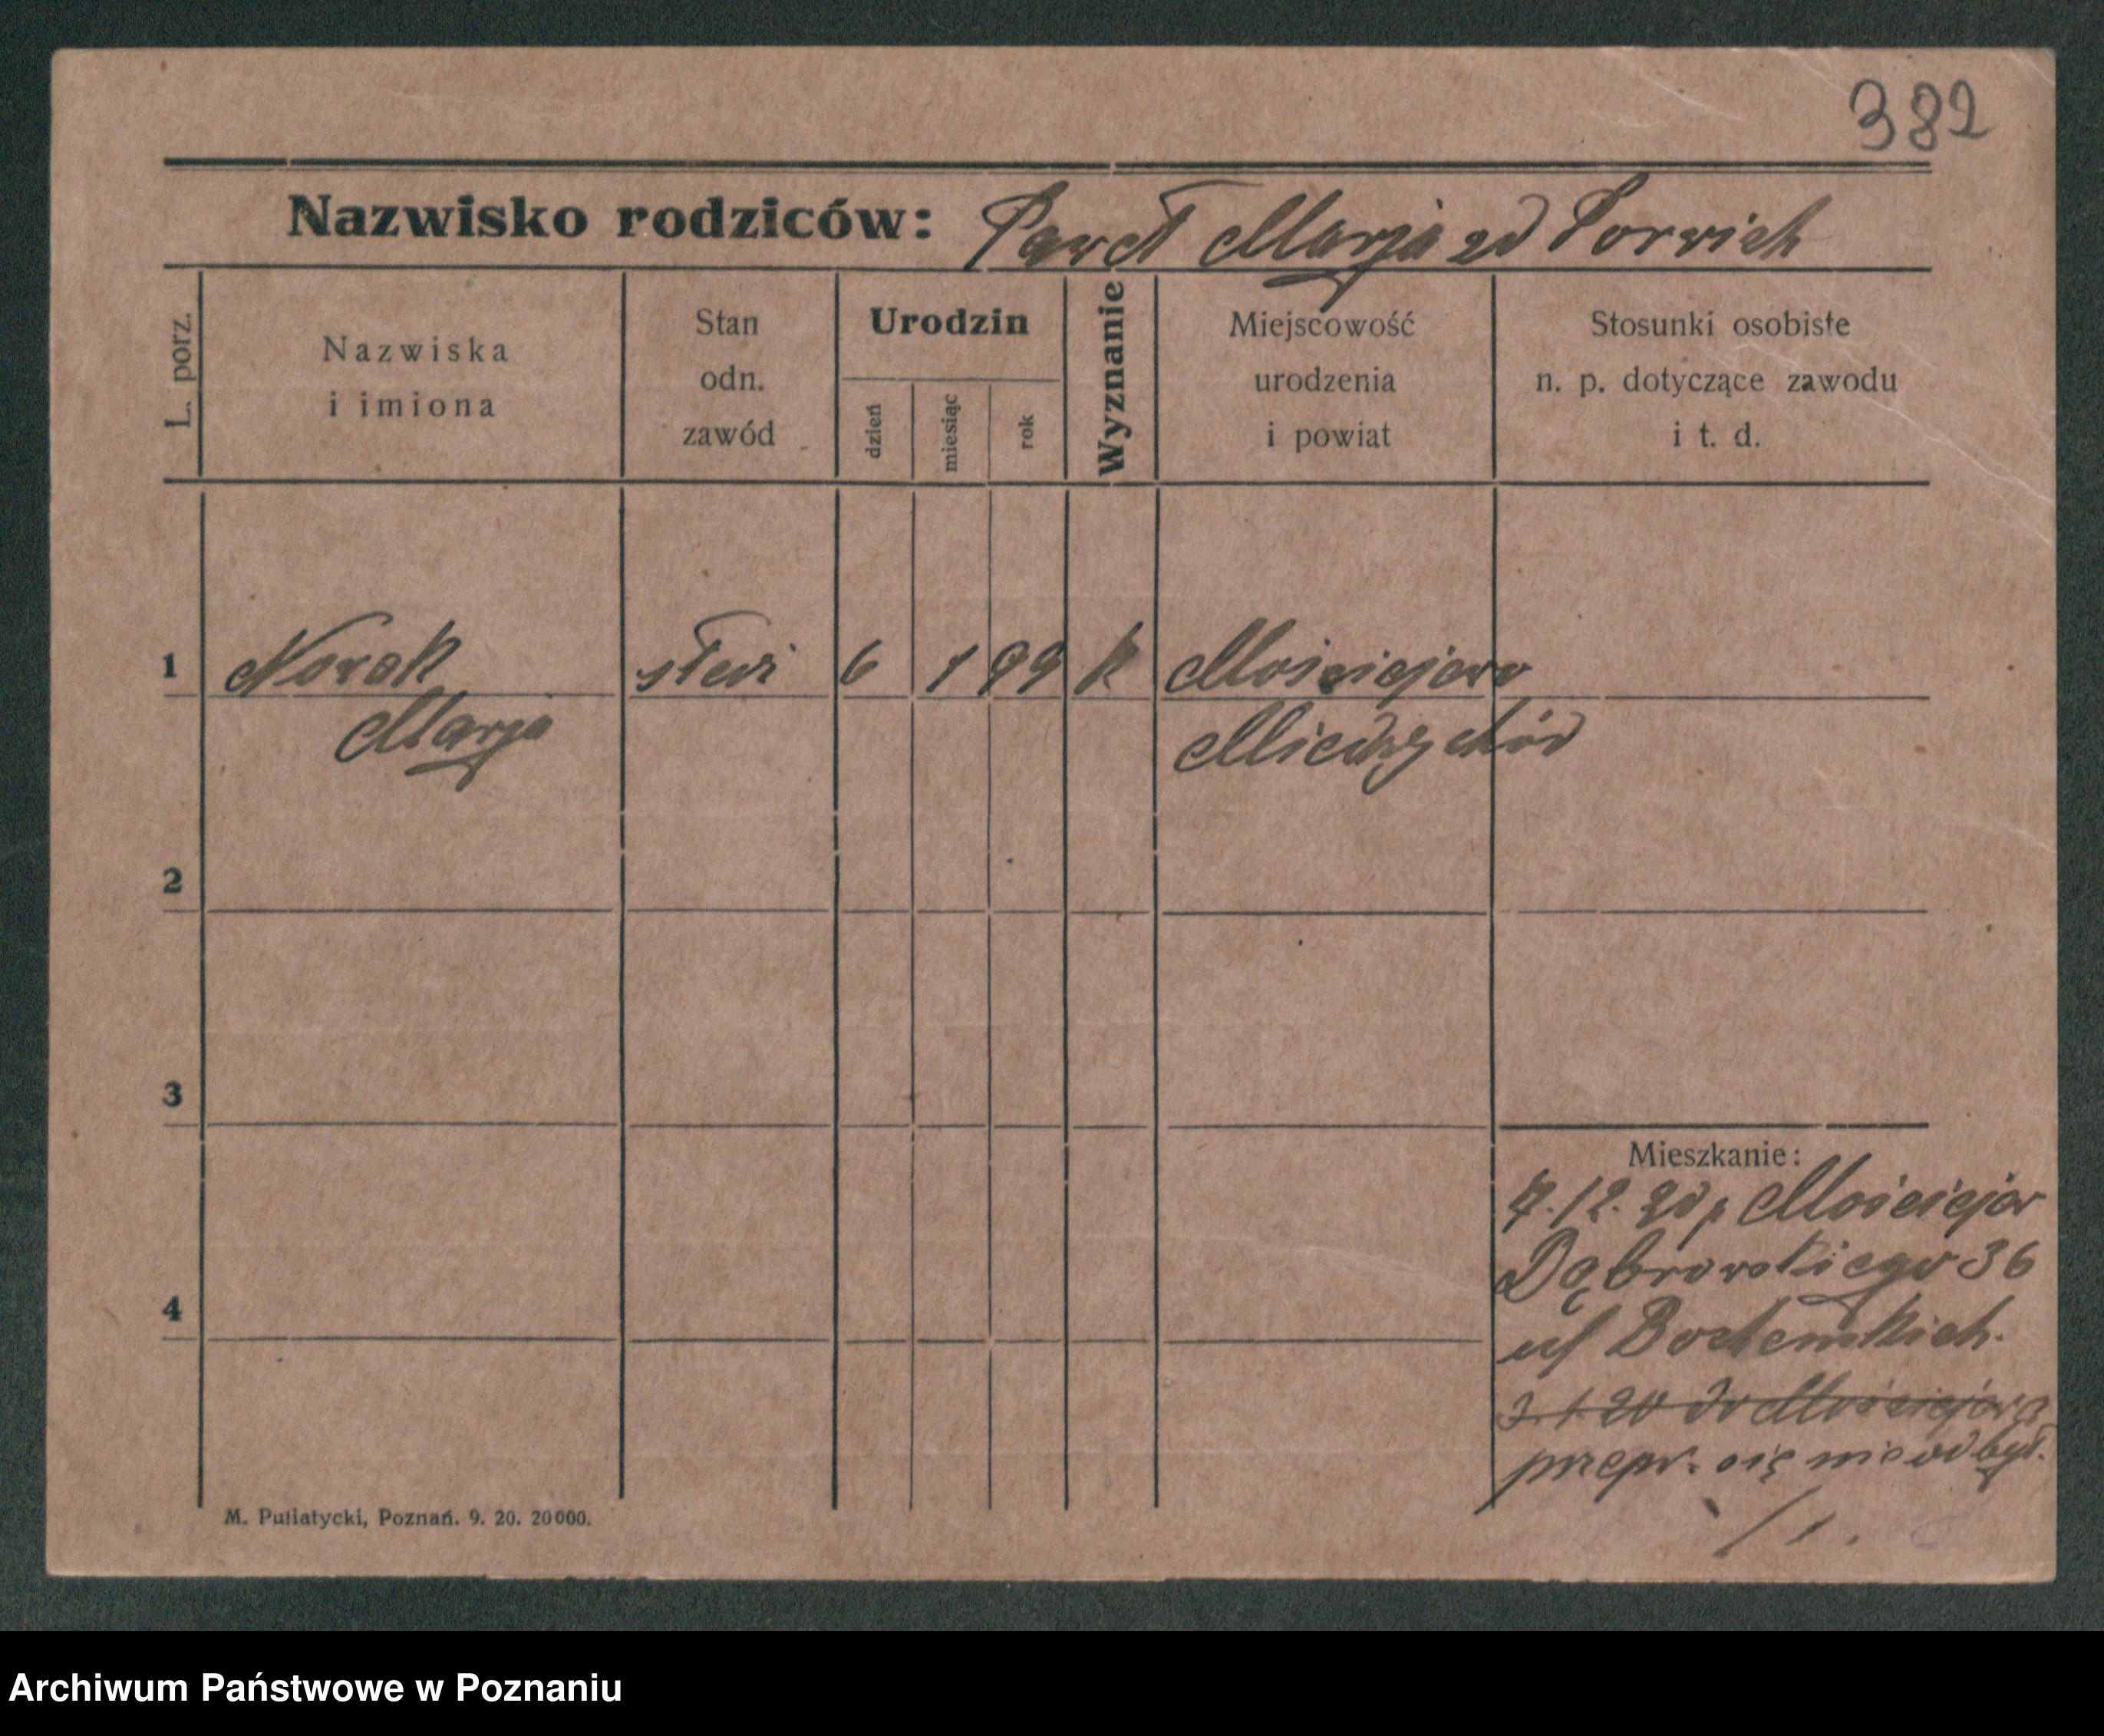 382
Nazwisko rodziców: Paweł Marja zd Porwich
L. porz.
Nazwiska
i imiona
Stan
odn.
zawód
Urodzin
dzień
miesiąc
rok
Wyznanie
Miejscowość
urodzenia
i powiat
Stosunki osobiste
n. p. dotyczące zawodu
i t. d.
1 Nowak służ 6 1 99 k Mościejewo
Marja Międzychód
2
3
4
Mieszkanie:
7.12.20 p Mościejew
Dąbrowskiego 36
u/ Bochenskich.
3.1.20 do Mościejewa
przepr. się nie odbył.
/1.
M. Putiatycki, Poznań. 9. 20. 20000.
Archiwum Państwowe w Poznaniu